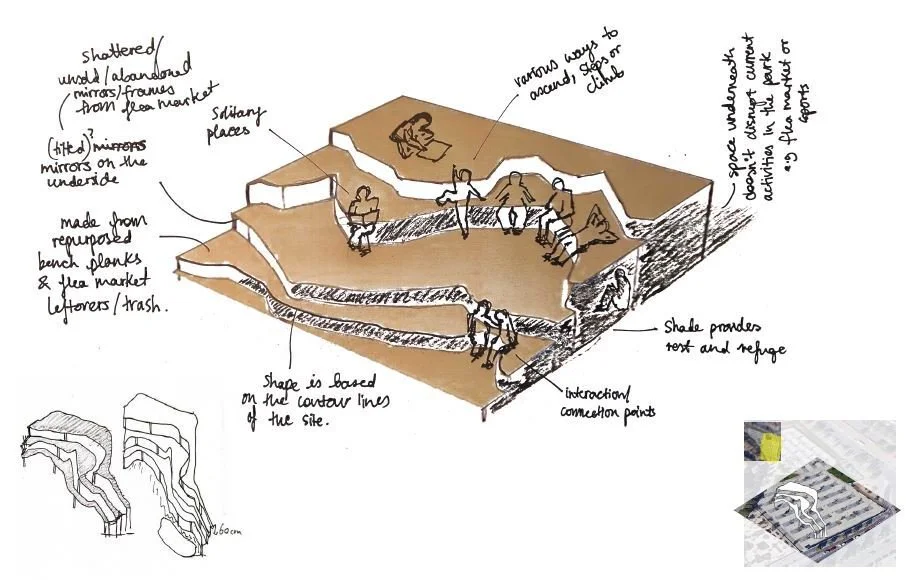 shattered/
unsold/abandoned
mirrors/frames
from flea market
(tilted)? mirrors
mirrors on the
underside
made from
repurposed
bench planks
& flea market
leftorers/trash.
Solitary
places
various ways to
ascend, steps or
climb
space underneath
doesn't disrupt current
activities in the park
e.g flea market or
sports
Shade provides
rest and refuge
interaction/
connection points
Shape is based
on the contour lines
of the site.
260cm